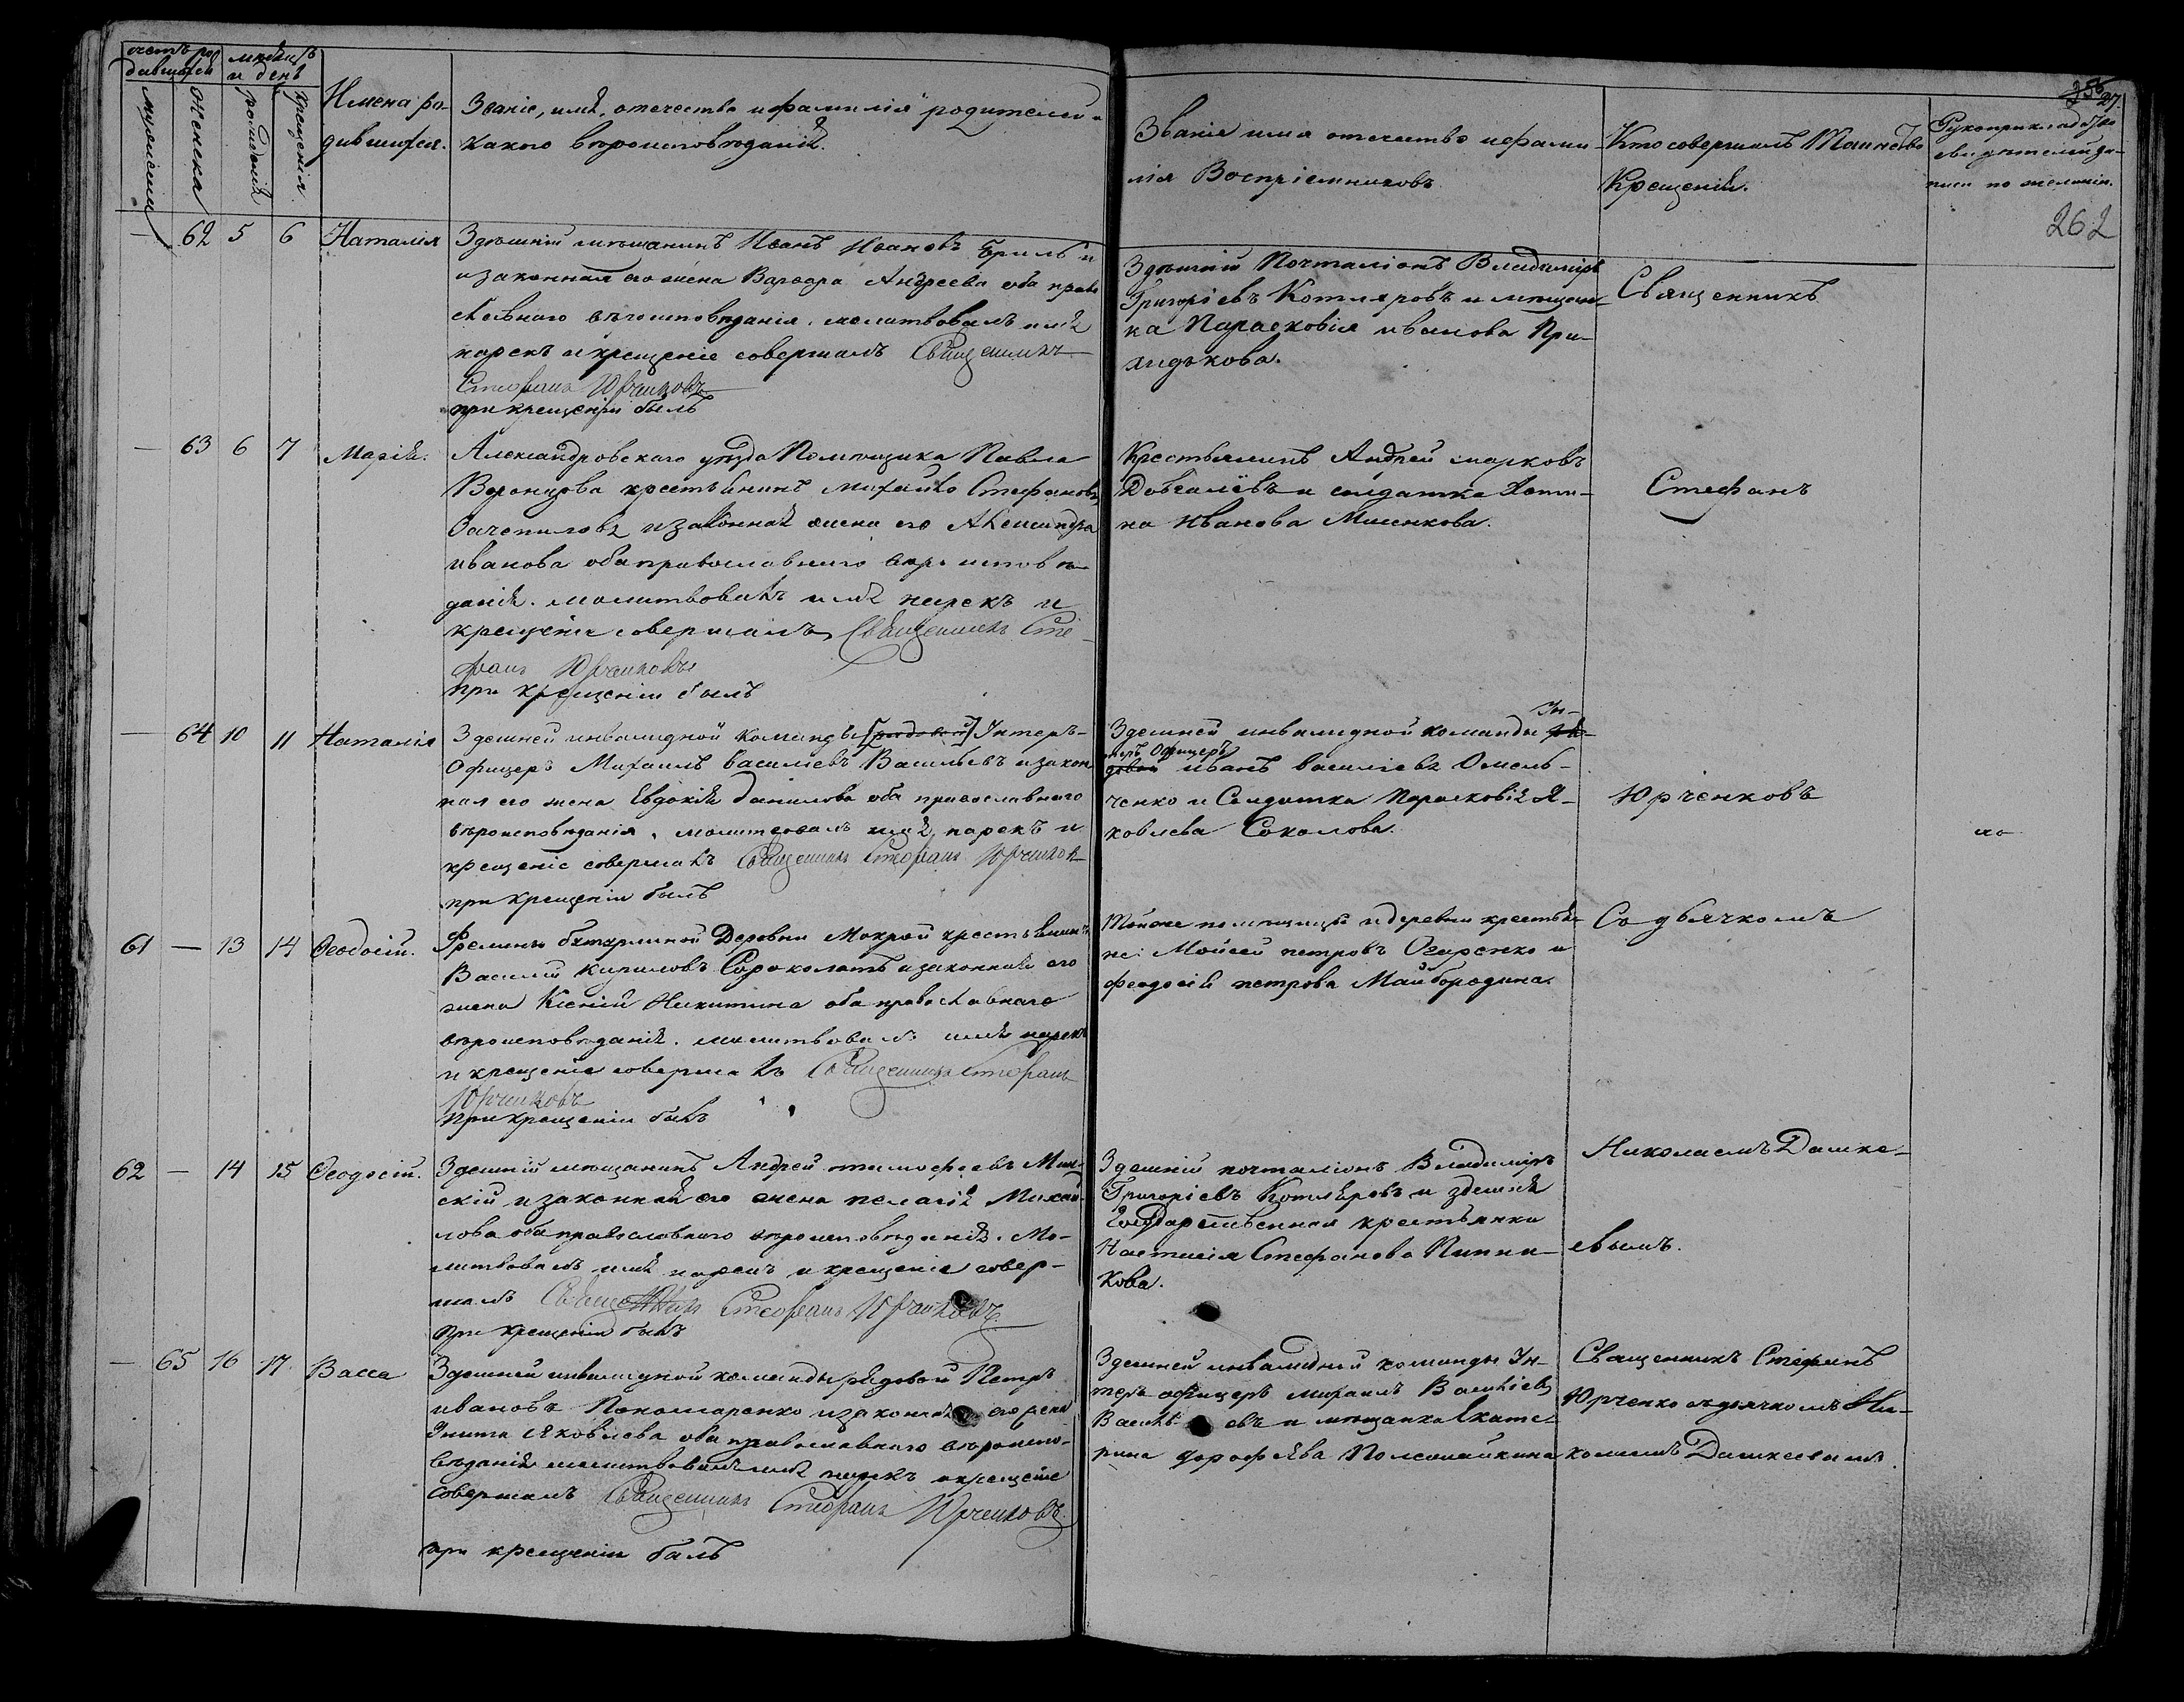 счетъ ро
дившихся
мѣсяцъ
и день
мужеска
женска
рожденія
крещенія
Имена ро-
дившихся.
Званіе, имя, отечество и фамилія родителей и
какого вѣроисповѣданія.
Званіе имя отечество и фами-
лія Воспріемниковъ
Кто совершалъ Таинство
Крещенія.
Рукоприкладство
свидѣтелей за-
писи по желанію.
27.
262
— 62 5 6 Наталія
Здѣшній мѣщанинъ Иванъ Ивановъ
и законная его жена Варвара Андреева оба право
славнаго вѣроисповѣданія. молитвовалъ имя
нарекъ и крещеніе совершалъ Священникъ
Стефанъ Юрченковъ
при крещеніи былъ
Здѣшній Почталіонъ Владимиръ
Григоріевъ Котляровъ и мѣщан-
ка Парасковія иванова При-
ходькова.
Священникъ
— 63 6 7 Марія.
Александровскаго уѣзда Помѣщика Павла
Воронцова крестьянинъ михайло Стефановъ
Зачепиловъ и законная жена его Александра
иванова оба православнаго вѣроисповѣ
данія. молитвовалъ имя нарекъ и
крещеніе совершалъ Священникъ Сте-
фанъ Юрченковъ
при крещеніи былъ
Крестьянинъ Андрей марковъ
и солдатка
на Иванова
Стефанъ
— 64 10 11 Наталія
Здешней инвалидной команды [рядовой] Унтеръ-
Офицеръ Михаилъ василіевъ Васильевъ и закон
ная его жена Евдокія данилова оба православнаго
вѣроисповѣданія. молитвовалъ имя, нарекъ и
крещеніе совершалъ Священникъ Стефанъ Юрченков
при крещеніи былъ
Здешней инвалидной команды Ун-
теръ Офицеръ иванъ василіевъ Омель-
ченко и Солдатка Парасковія Я-
ковлева Соколова.
Юрченковъ
61 — 13 14 Феодосій.
Деревни Мокрой крестьянинъ
Василій Сороколатъ и законная его
жена Ксенія Никитина оба православнаго
вѣроисповѣданія. молитвовалъ имя нарекъ
и крещеніе совершалъ Священникъ Стефанъ
Юрченковъ
при крещеніи былъ
Тойже помѣщицы и деревни крестья-
не: Мойсей петровъ и
феодосія петрова Майбородина.
Съ дьячкомъ
62 — 14 15 Феодосій.
Здешній мѣщанинъ Андрей тимофеевъ
скій и законная его жена пелагія Михай
лова оба православнаго вѣроисповѣданія. Мо-
литвовалъ имя нарекъ и крещеніе совер-
шалъ Священникъ Стефанъ Юрченковъ.
при крещеніи былъ
Здешній почталіонъ Владимиръ
Григоріевъ Котляровъ и здешняя
Государственная крестьянка
Настасія Стефанова
кова.
Николаемъ Дашке-
евымъ.
— 65 16 17. Васса
Здешней инвалидной команды рядовой Петръ
ивановъ Пономаренко и законная его жена
Улита Яковлева оба православнаго вѣроиспо-
вѣданія молитвовалъ имя нарекъ и крещеніе
совершалъ Священникъ Стефанъ Юрченковъ.
при крещеніи былъ
Здешней инвалидной команды Ун-
теръ офицеръ михаилъ Василіевъ
Василь евъ и мѣщанка Екате-
рина дорофѣева
Священникъ Стефанъ
Юрченко съ дьячкомъ Ни-
колаемъ Дашкеевымъ.